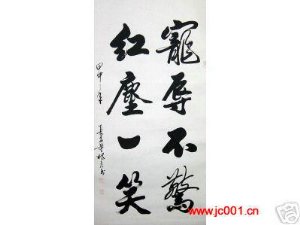 寵辱不驚
紅塵一笑
甲申年
www.jc001.cn